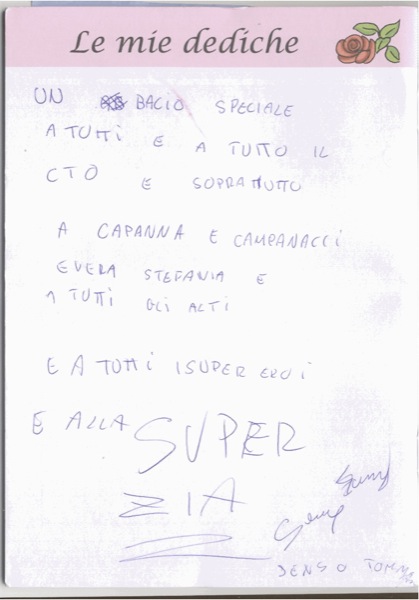 Le mie dediche
UN BACIO SPECIALE
A TUTTI E A TUTTO IL
CTO E SOPRATTUTTO
A CAPANNA E CAMPANACCI
E VERA STEFANIA E
A TUTTI GLI ALTI
E A TUTTI I SUPER EROI
E ALLA SUPER
ZIA